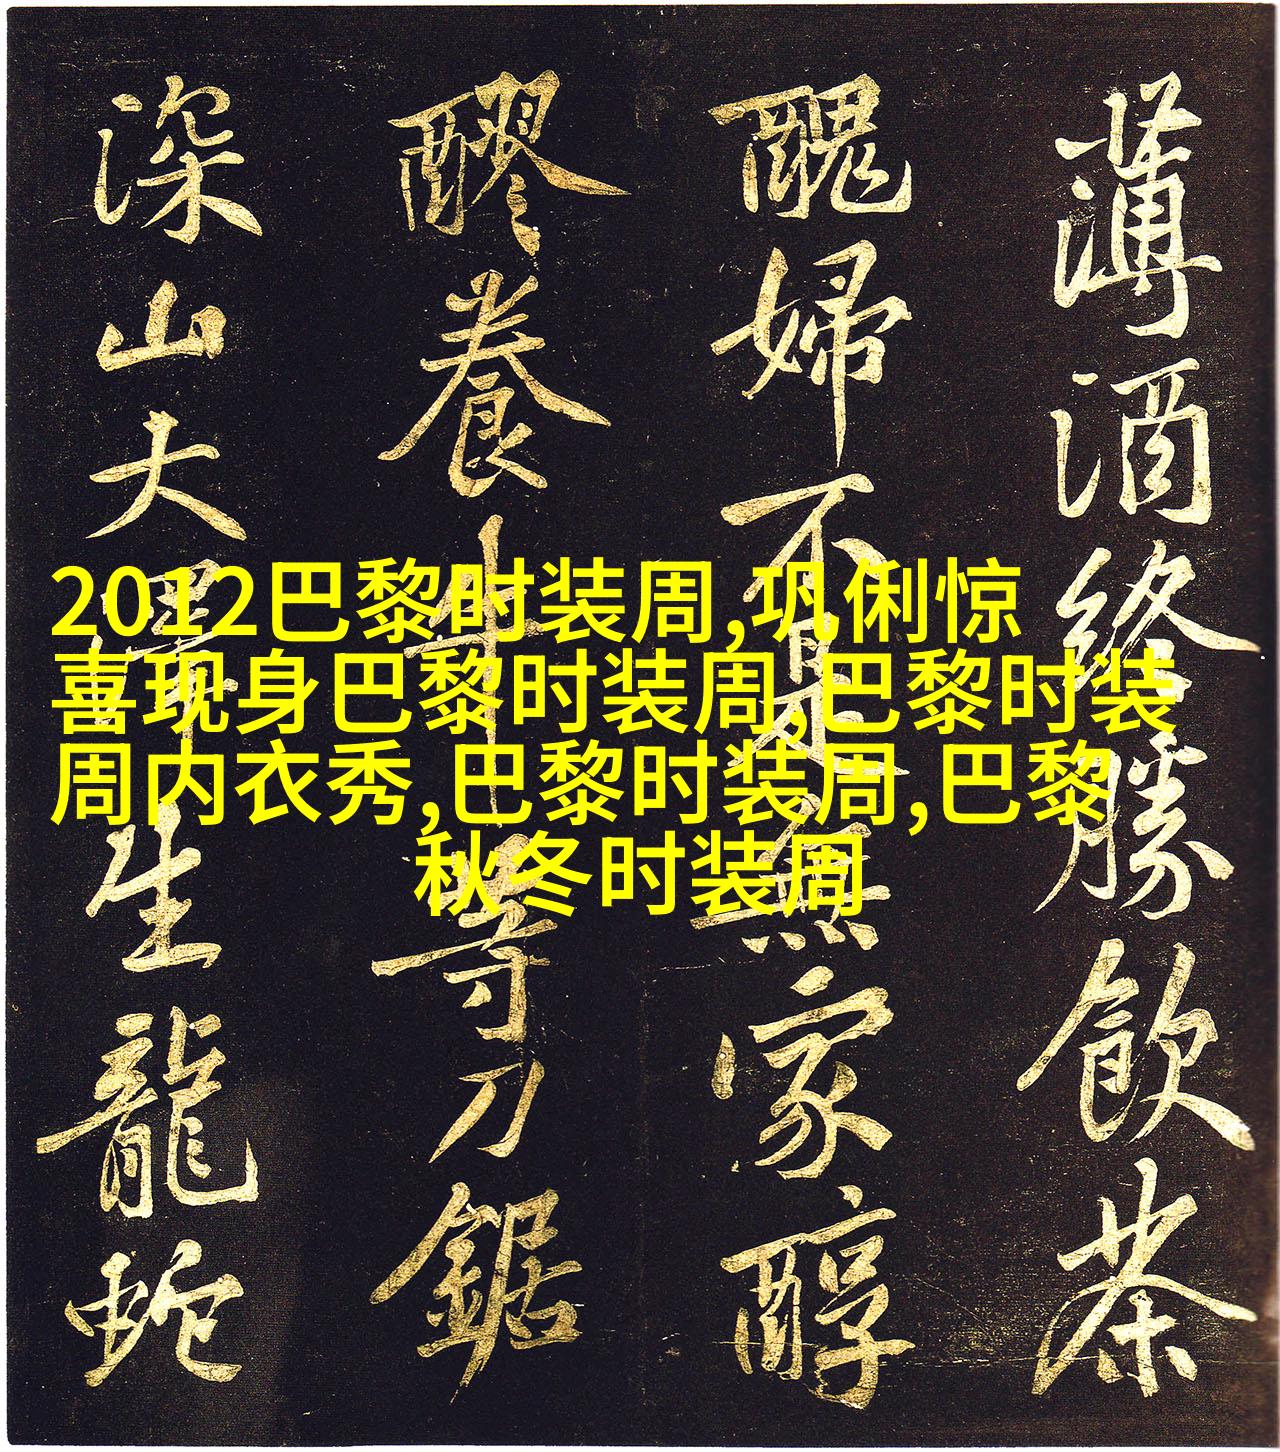 2012巴黎时装周,巩俐惊
喜现身巴黎时装周,巴黎时装
周内衣秀,巴黎时装周,巴黎
秋冬时装周
薄酒終勝飲茶
醜婦不是無家醇
醪養牛等刀鋸
深山大澤生龍蛇